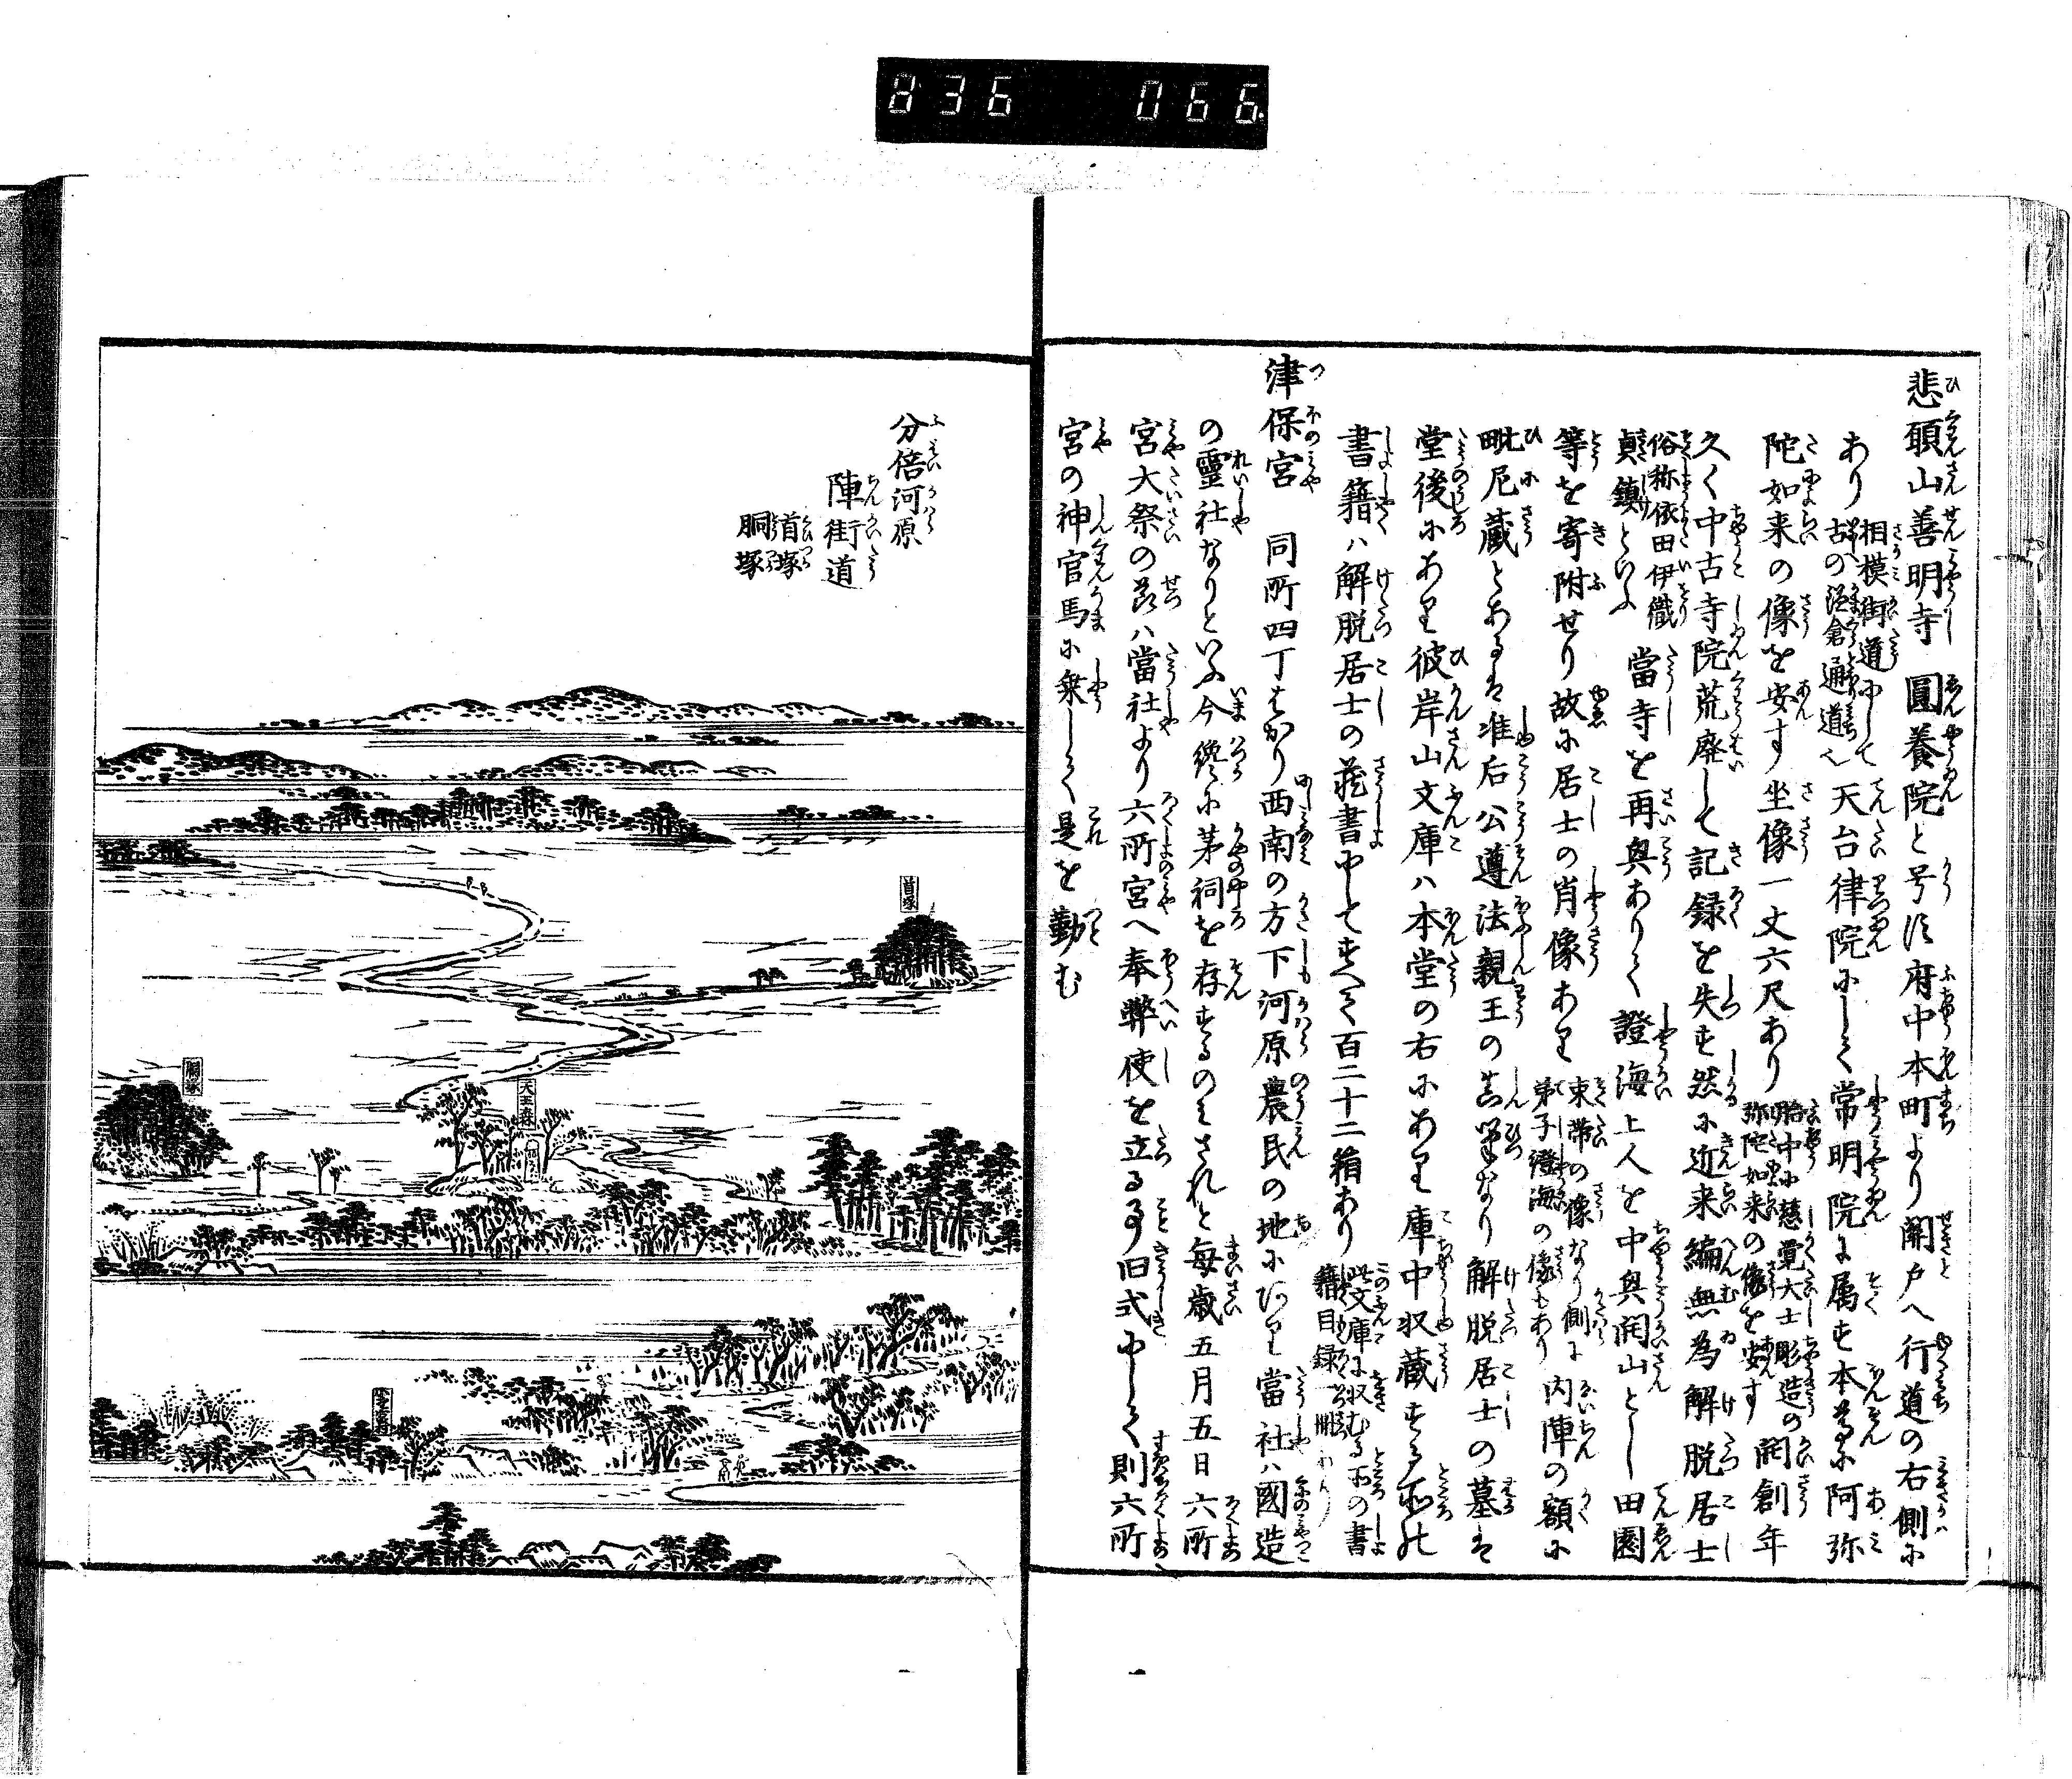 836 066
悲願山善明寺 圓養院と号す府中本町より関戸へ行道の右側に
あり 相模街道にして
古の鎌倉通道也 天台律院にして常明院に属す本尊に阿弥
陀如来の像を安す坐像一丈六尺あり 胎中に慈覚大士彫造の
弥陀如来の像を安す 開創年
久く中古寺院荒廃して記録を失す然に近来編無為解脱居士
俗称依田伊織
貞鎮といふ 當寺を再興ありて證海上人を中興開山とし田園
等を寄附せり故に居士の肖像あり 束帯の像なり側に
弟子澄海の像もあり 内陣の額に
毗尼蔵とあるは准后公遵法親王の真筆なり解脱居士の墓は
堂後にあり彼岸山文庫ハ本堂の右にあり庫中収蔵する所の
書籍ハ解脱居士の蔵書にしてすへて百二十二箱あり 此文庫に収むる所の書
籍目録一冊あり
津保宮 同所四丁はかり西南の方下河原農民の地にあり當社ハ國造
の靈社なりといふ今纔に茅祠を存するのみされと毎歳五月五日六所
宮大祭の節ハ當社より六所宮へ奉幣使を立る事旧式にして則六所
宮の神官馬に乗して是を勤む
分倍河原
陣街道
首塚
胴塚
首塚
胴塚
天王森